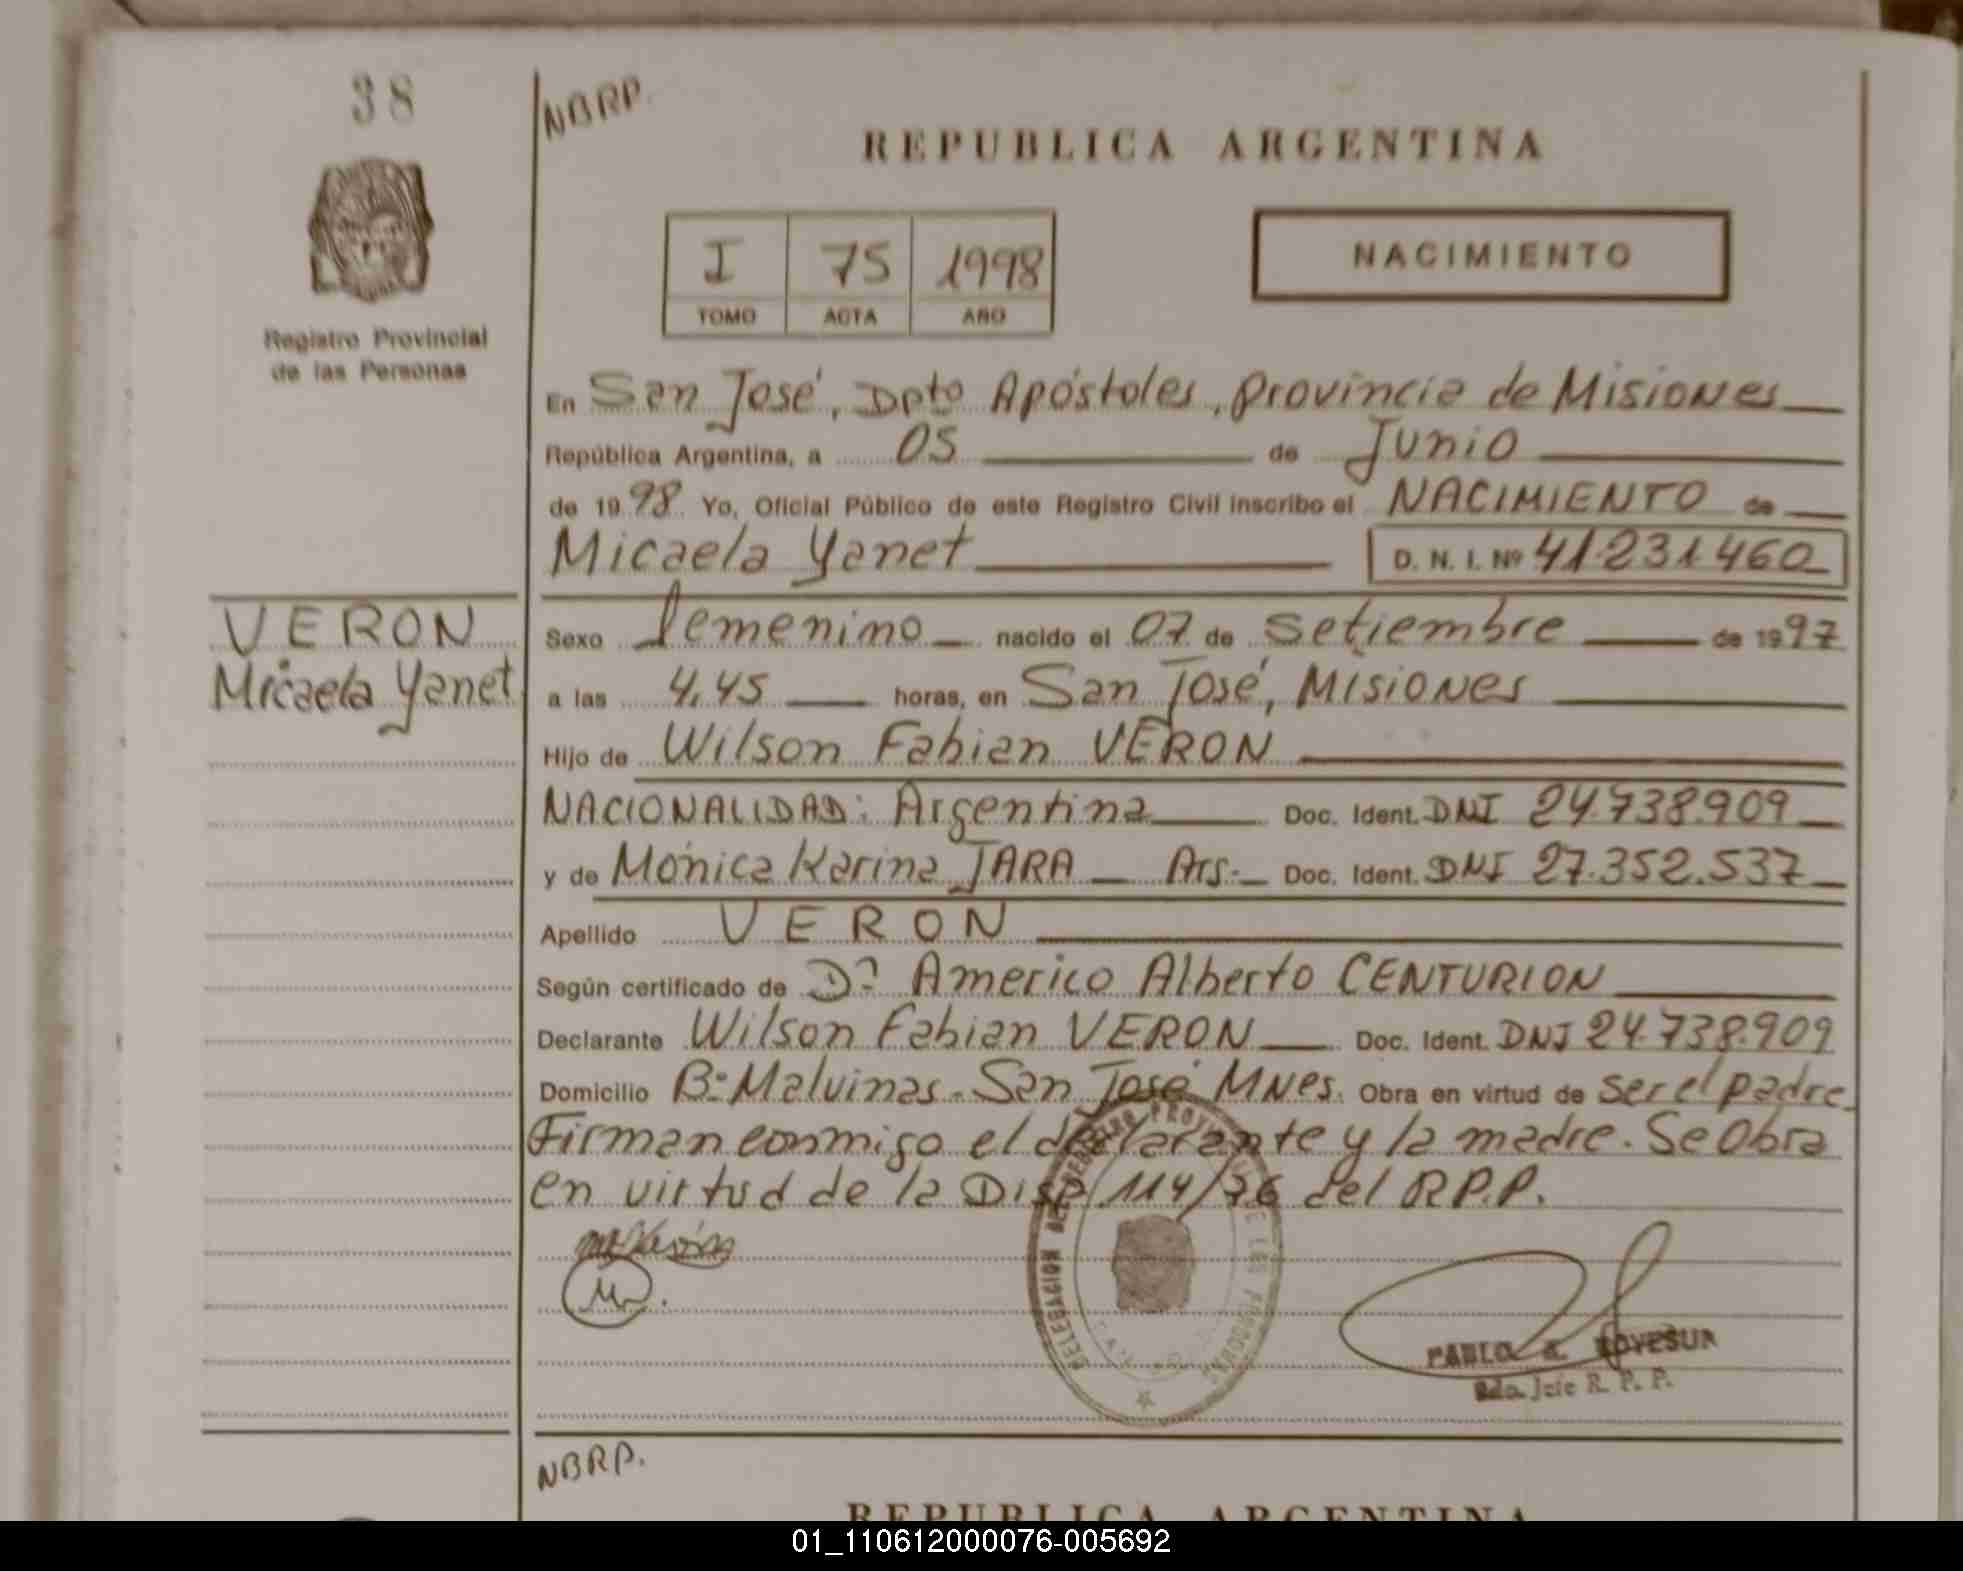 38
NBRP.
REPUBLICA ARGENTINA
I 75 1998
TOMO ACTA AÑO
NACIMIENTO
Registro Provincial
de las Personas
En San José, Dpto Apóstoles, provincia de Misiones
República Argentina, a 05 de Junio
de 1998 Yo, Oficial Público de este Registro Civil inscribo el NACIMIENTO de
Micaela Yanet D. N. I. Nº 41.231.460
VERON
Micaela Yanet
Sexo femenino nacido el 07 de setiembre de 1997
a las 4,45 horas, en San José, Misiones
Hijo de Wilson Fabian VERON
NACIONALIDAD: Argentina Doc. Ident. DNI 24.738.909
y de Mónica Karina JARA Arg.- Doc. Ident. DNI 27.352.537
Apellido VERON
Según certificado de Dº Americo Alberto CENTURION
Declarante Wilson Fabian VERON Doc. Ident. DNI 24.738.909
Domicilio Bº Malvinas - San José Mnes. Obra en virtud de ser el padre.
Firman conmigo el declarante y la madre. Se Obra
en virtud de la Disp 114/76 del R.P.P.
DELEGACION DEL REGISTRO PROVINCIAL DE LAS PERSONAS
PABLO A.
R. P. P.
NBRP.
REPUBLICA ARGENTINA
01_110612000076-005692